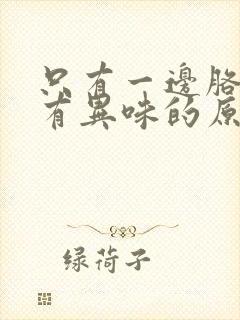 只有一邊胳
有異味的原
绿荷子